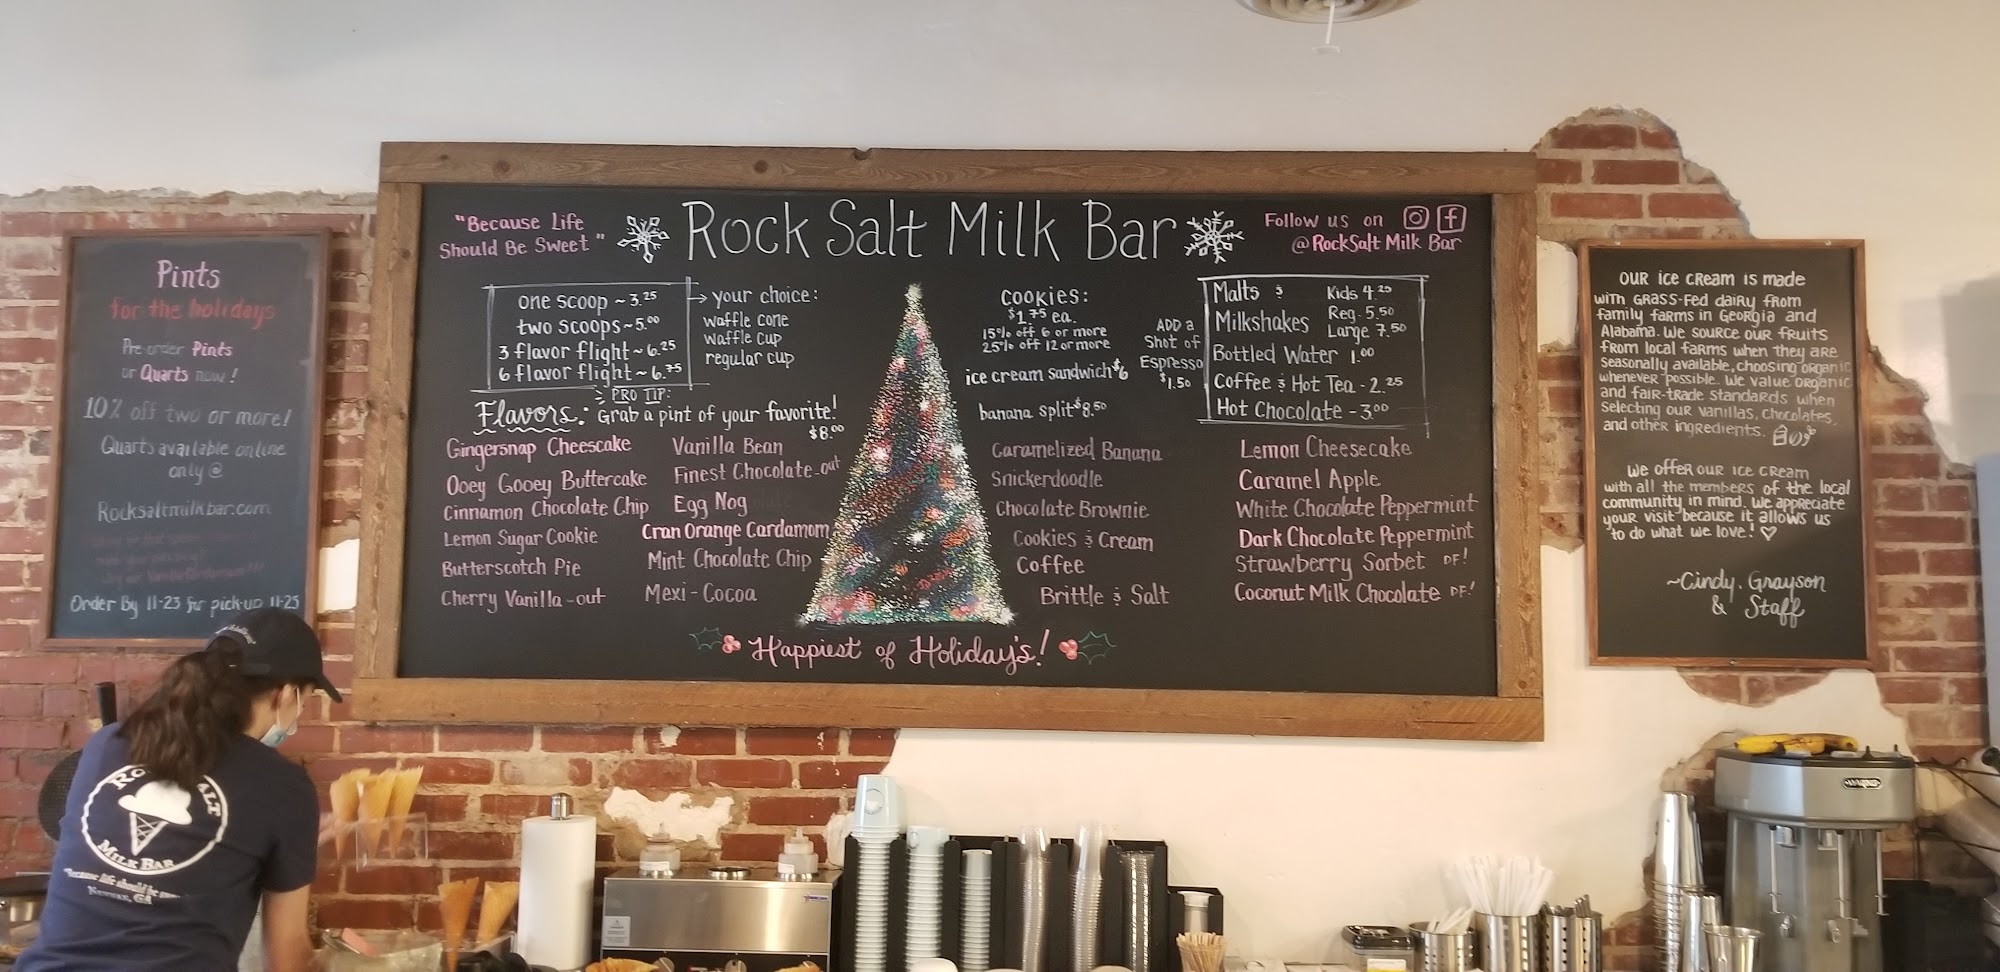 Pints
for the holidays
Pre-order Pints
or Quarts now!
10% off two or more!
Quarts available online
only @
Rocksaltmilkbar.com
Order By 11-23 for pick-up 11-25
"Because Life
Should Be Sweet"
Rock Salt Milk Bar
Follow us on
@RockSalt Milk Bar
one scoop ~ 3.25
two scoops ~ 5.00
3 flavor flight ~ 6.25
6 flavor flight ~ 6.75
your choice:
waffle cone
waffle cup
regular cup
PRO TIP:
Flavors: Grab a pint of your favorite!
$8.00
Gingersnap Cheescake
Ooey Gooey Buttercake
Cinnamon Chocolate Chip
Lemon Sugar Cookie
Butterscotch Pie
Cherry Vanilla -out
Vanilla Bean
Finest Chocolate -out
Egg Nog
Cran Orange Cardamom
Mint Chocolate Chip
Mexi-Cocoa
COOKIES:
$1.75 ea.
15% off 6 or more
25% off 12 or more
ice cream sandwich $6
banana split $8.50
ADD a
Shot of
Espresso
$1.50
Malts &
Milkshakes
Kids 4.25
Reg. 5.50
Large 7.50
Bottled Water 1.00
Coffee & Hot Tea - 2.25
Hot Chocolate - 3.00
Caramelized Banana
Snickerdoodle
Chocolate Brownie
Cookies & Cream
Coffee
Brittle & Salt
Lemon Cheesecake
Caramel Apple
White Chocolate Peppermint
Dark Chocolate Peppermint
Strawberry Sorbet DF!
Coconut Milk Chocolate DF!
Happiest of Holiday's!
OUR ICE CREAM IS MADE
WITH GRASS-FED DAIRY FROM
family farms in Georgia and
Alabama. We source our fruits
from local farms when they are
seasonally available, choosing organic
whenever possible. We value organic
and fair-trade standards when
selecting our vanillas, chocolates,
and other ingredients.
We offer our ice cream
with all the members of the local
community in mind. We appreciate
your visit because it allows us
to do what we love!
~Cindy, Grayson
& Staff
ROCK SALT
MILK BAR
"Because life should be
NEWNAN, GA